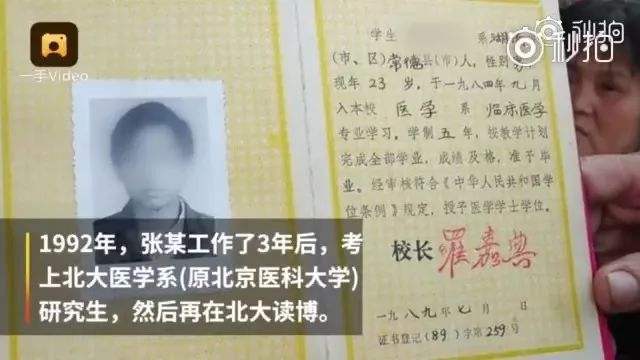 一手Video
秒拍
秒拍
学生
系湖南
(市、区)常德县(市)人，性别
现年23岁，于一九八四年九月
入本校医学系临床医学
专业学习。学制五年，按教学计划
完成全部学业，成绩及格，准予毕
业。经审核符合《中华人民共和国学
位条例》规定，授予医学学士学位。
校长 罗嘉典
一九八九年七月 日
证书登记(89)字第259号
1992年，张某工作了3年后，考
上北大医学系(原北京医科大学)
研究生，然后再在北大读博。